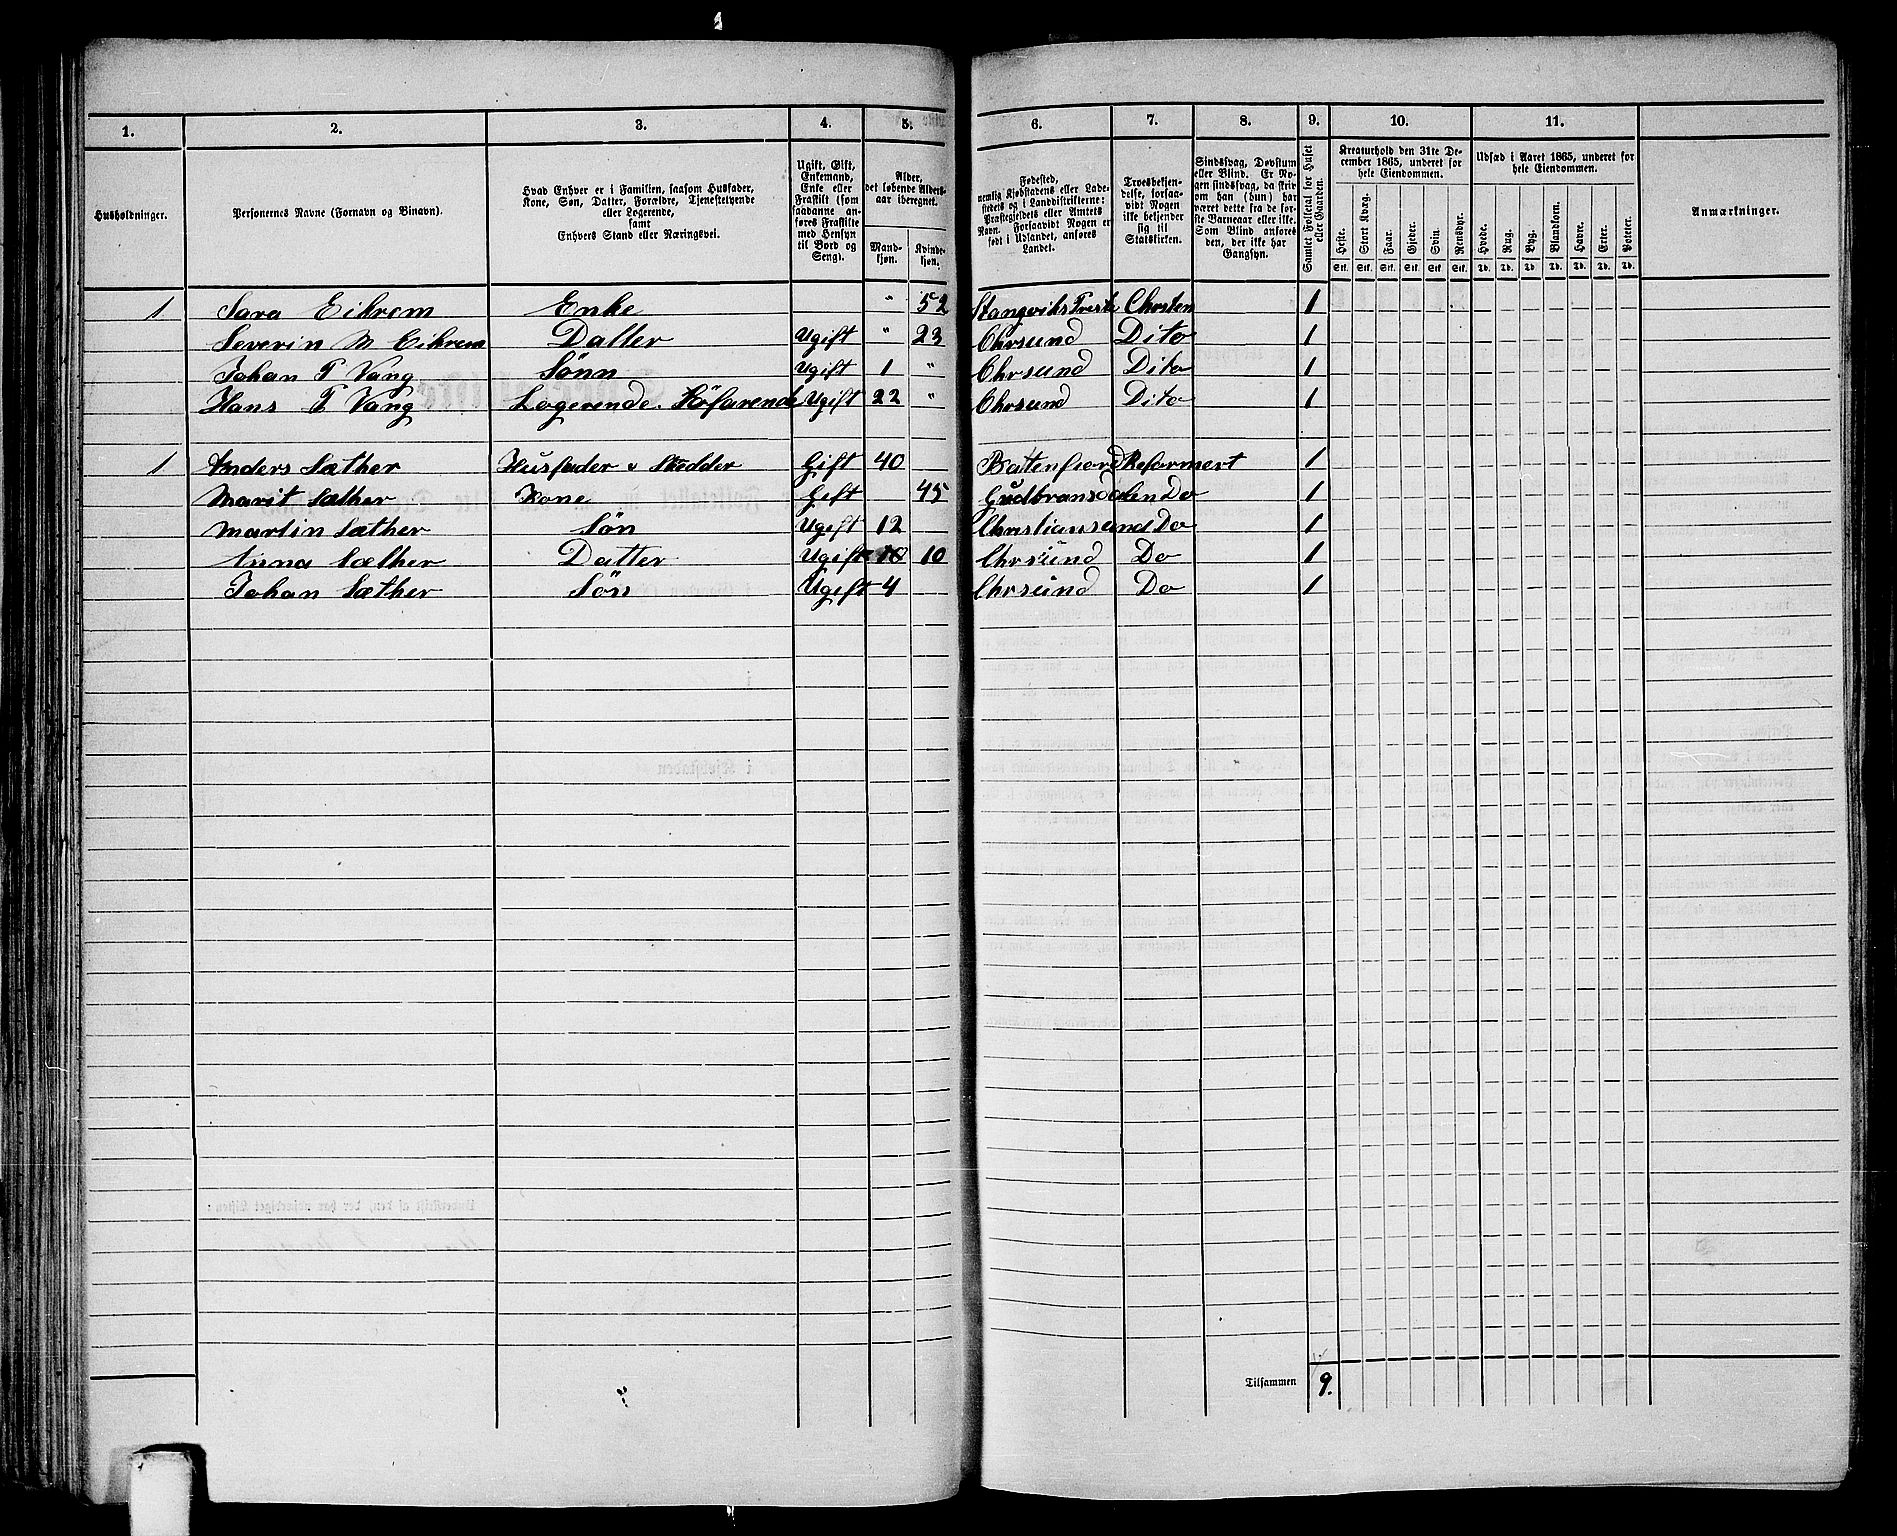 1. 2. 3. 4. 5. 6. 7. 8. 9. 10. 11.
Husholdninger.
Personernes Navne (Fornavn og Binavn).
Hvad Enhver er i Familien, saasom Husfader,
Kone, Søn, Datter, Forældre, Tjenestetyende
eller Logerende,
samt
Enhvers Stand eller Næringsvei.
Ugift, Gift,
Enkemand,
Enke eller
Fraskilt (som
saadanne an-
føres Fraskilte
med Hensyn
til Bord og
Seng).
Alder,
det løbende Alders-
aar iberegnet.
Mand-
kjøn.
Kvinde-
kjøn.
Fødested,
nemlig Kjøbstadens eller Lade-
stedets og i Landdistrikterne:
Præstegjeldets eller Amtets
Navn. Forsaavidt Nogen er
født i Udlandet, anføres
Landet.
Troesbekjen-
delse, forsaa-
vidt Nogen
ikke bekjender
sig til
Statskirken.
Sindssvag, Døvstum
eller Blind. Er No-
gen sindssvag, da skri-
ves om han (hun) har
været dette fra de før-
ste Barneaar eller ikke.
Som Blind anføres
den, der ikke har
Gangsyn.
Samlet Folketal for Huset
eller Gaarden.
Kreaturhold den 31te De-
cember 1865, underet for
hele Eiendommen.
Heste. Stort Kvæg. Faar. Gjeder. Svin. Rensdyr.
Stk. Stk. Stk. Stk. Stk. Stk.
Udsæd i Aaret 1865, underet for
hele Eiendommen.
Hvede. Rug. Byg. Blandkorn. Havre. Erter. Poteter.
Td. Td. Td. Td. Td. Td. Td.
Anmærkninger.
1 Sara Eikrem Enke " 52 Stangviks Chrsten 1
Severin M Eikrem Datter Ugift " 23 Chrsund Dito 1
Johan T Vang Sønn Ugift 1 " Chrsund Dito 1
Hans T Vang Logerende. Søfarende Ugift 22 " Chrsund Dito 1
1 Anders Sæther Husfader Gift 40 Batenfiord Reformert 1
Marit Sæther Kone Gift 45 Gudbransdalen Do 1
Martin Sæther Søn Ugift 12 Christiansund Do 1
Anna Sæther Datter Ugift 10 Chrsund Do 1
Johan Sæther Søn Ugift 4 Chrsund Do 1
Tilsammen 9.